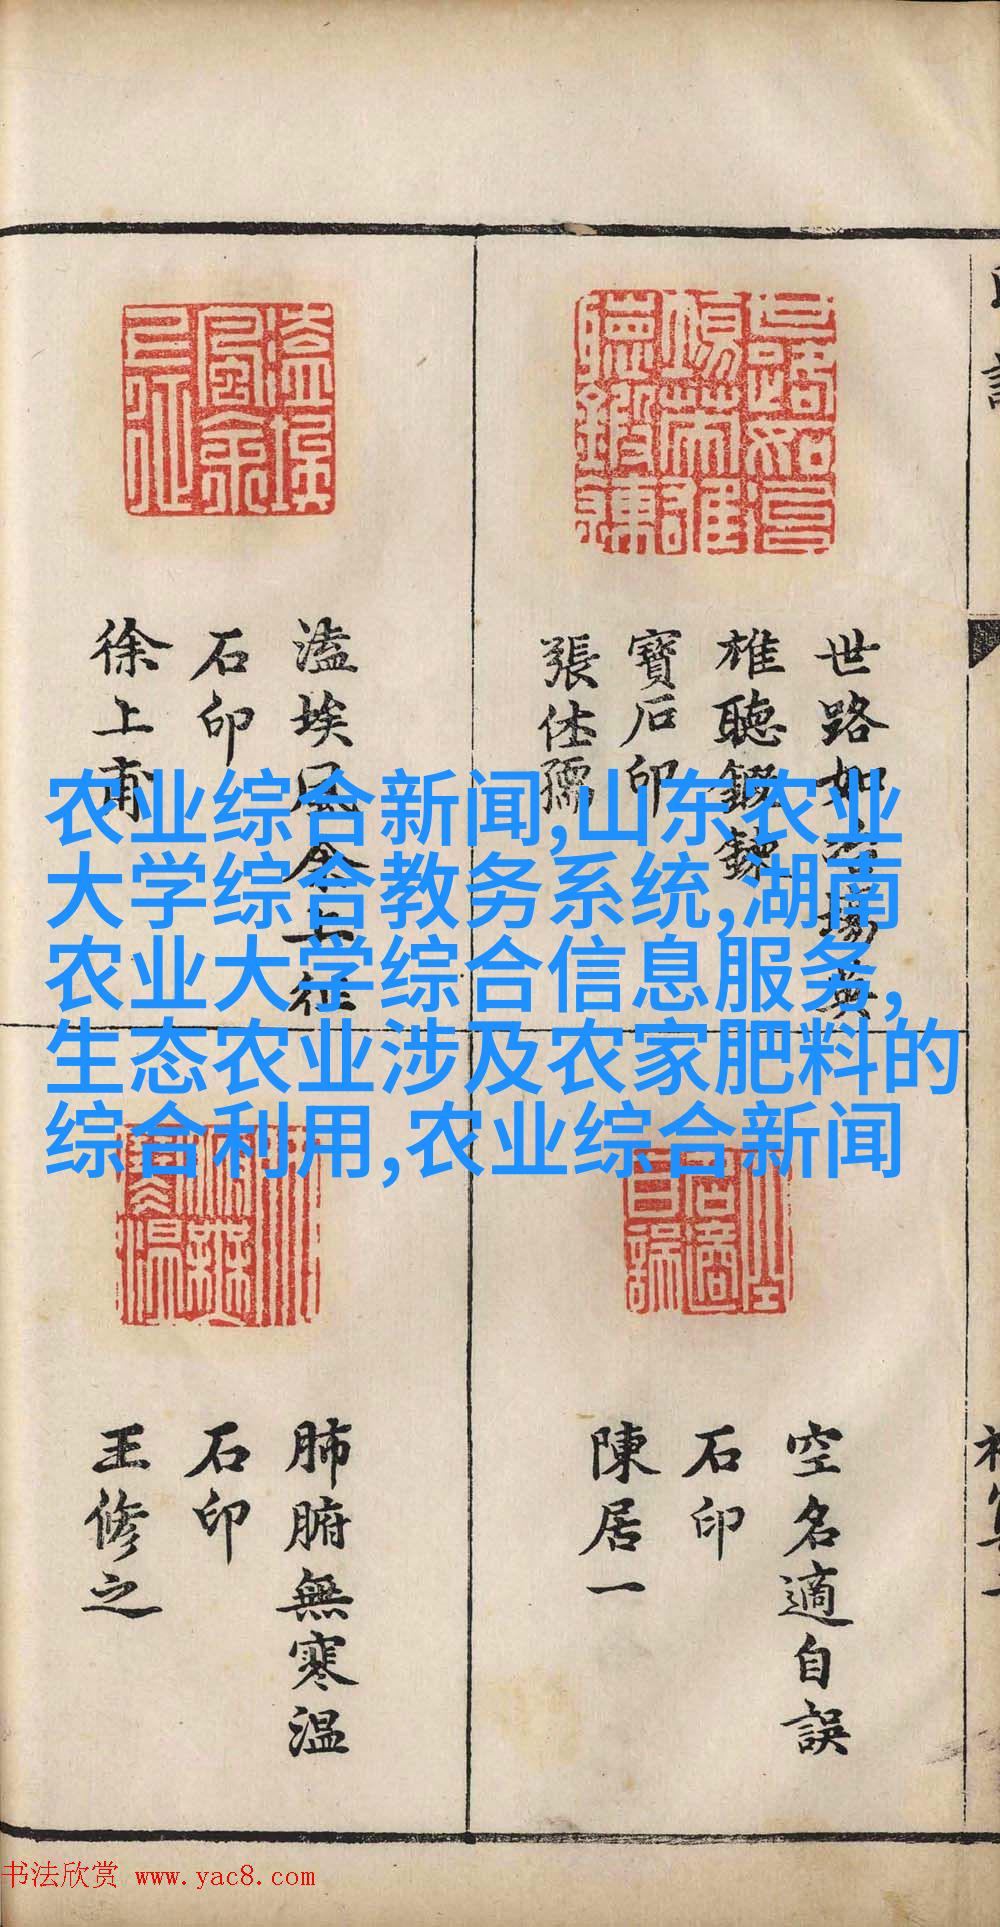 世路如
雄聽鍛鍊
寶石印
張仕孺
溘埃風余上征
石印
徐上甫
农业综合新闻,山东农业
大学综合教务系统,湖南
农业大学综合信息服务,
生态农业涉及农家肥料的
综合利用,农业综合新闻
空名適自誤
石印
陳居一
肺腑無寒温
石印
王修之
书法欣赏 www.yac8.com